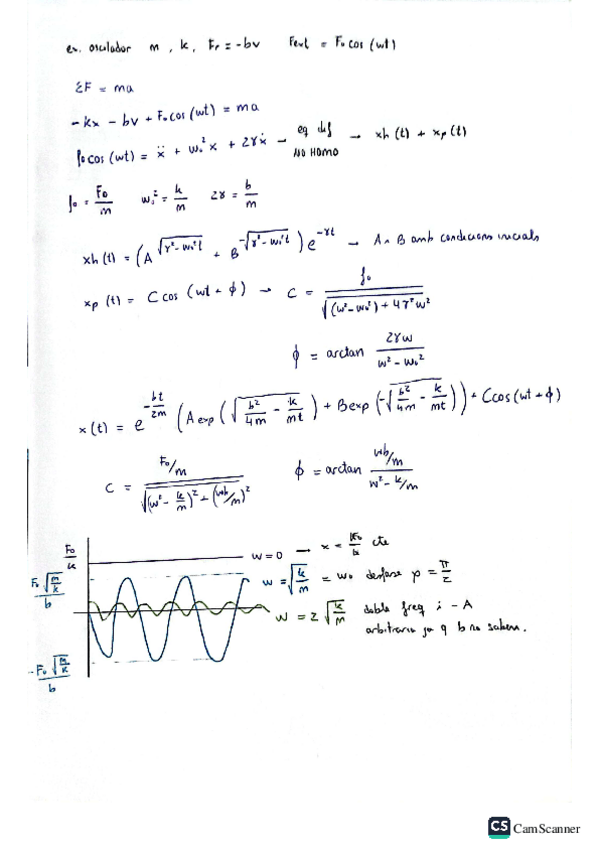 ex. oscilador m, k, Fr = -bv Fext = F₀ cos (wt)
ΣF = ma
-kx - bv + F₀cos (wt) = ma
f₀ cos (wt) = ẍ + w₀² x + 2γẋ → eq dif NO HOMO → xh (t) + xp (t)
f₀ = F₀/m w₀² = k/m 2γ = b/m
xh (t) = (A^(√(γ²-w₀²t)) + B^(-√(γ²-w₀²t))) e^(-γt) → A i B amb condicions inicials
xp (t) = C cos (wt + ϕ) → C = f₀/√((w²-w₀²) + 4γ²w²)
ϕ = arctan 2γw/(w²-w₀²)
x(t) = e^(-bt/2m) (A exp (√(b²/4m - k/mt)) + B exp (-√(b²/4m - k/mt))) + C cos (wt + ϕ)
C = F₀/m/√((w² - k/m)² + (wb/m)²) ϕ = arctan wb/m/(w² - k/m)
F₀/k
w = 0 → x = F₀/k cte
F₀√(m/k)/b
w = √(k/m) = w₀ desfase φ = π/2
w = 2√(k/m) doble freq i - A
arbitraria ja q b no sabem.
-F₀√(m/k)/b
CS CamScanner